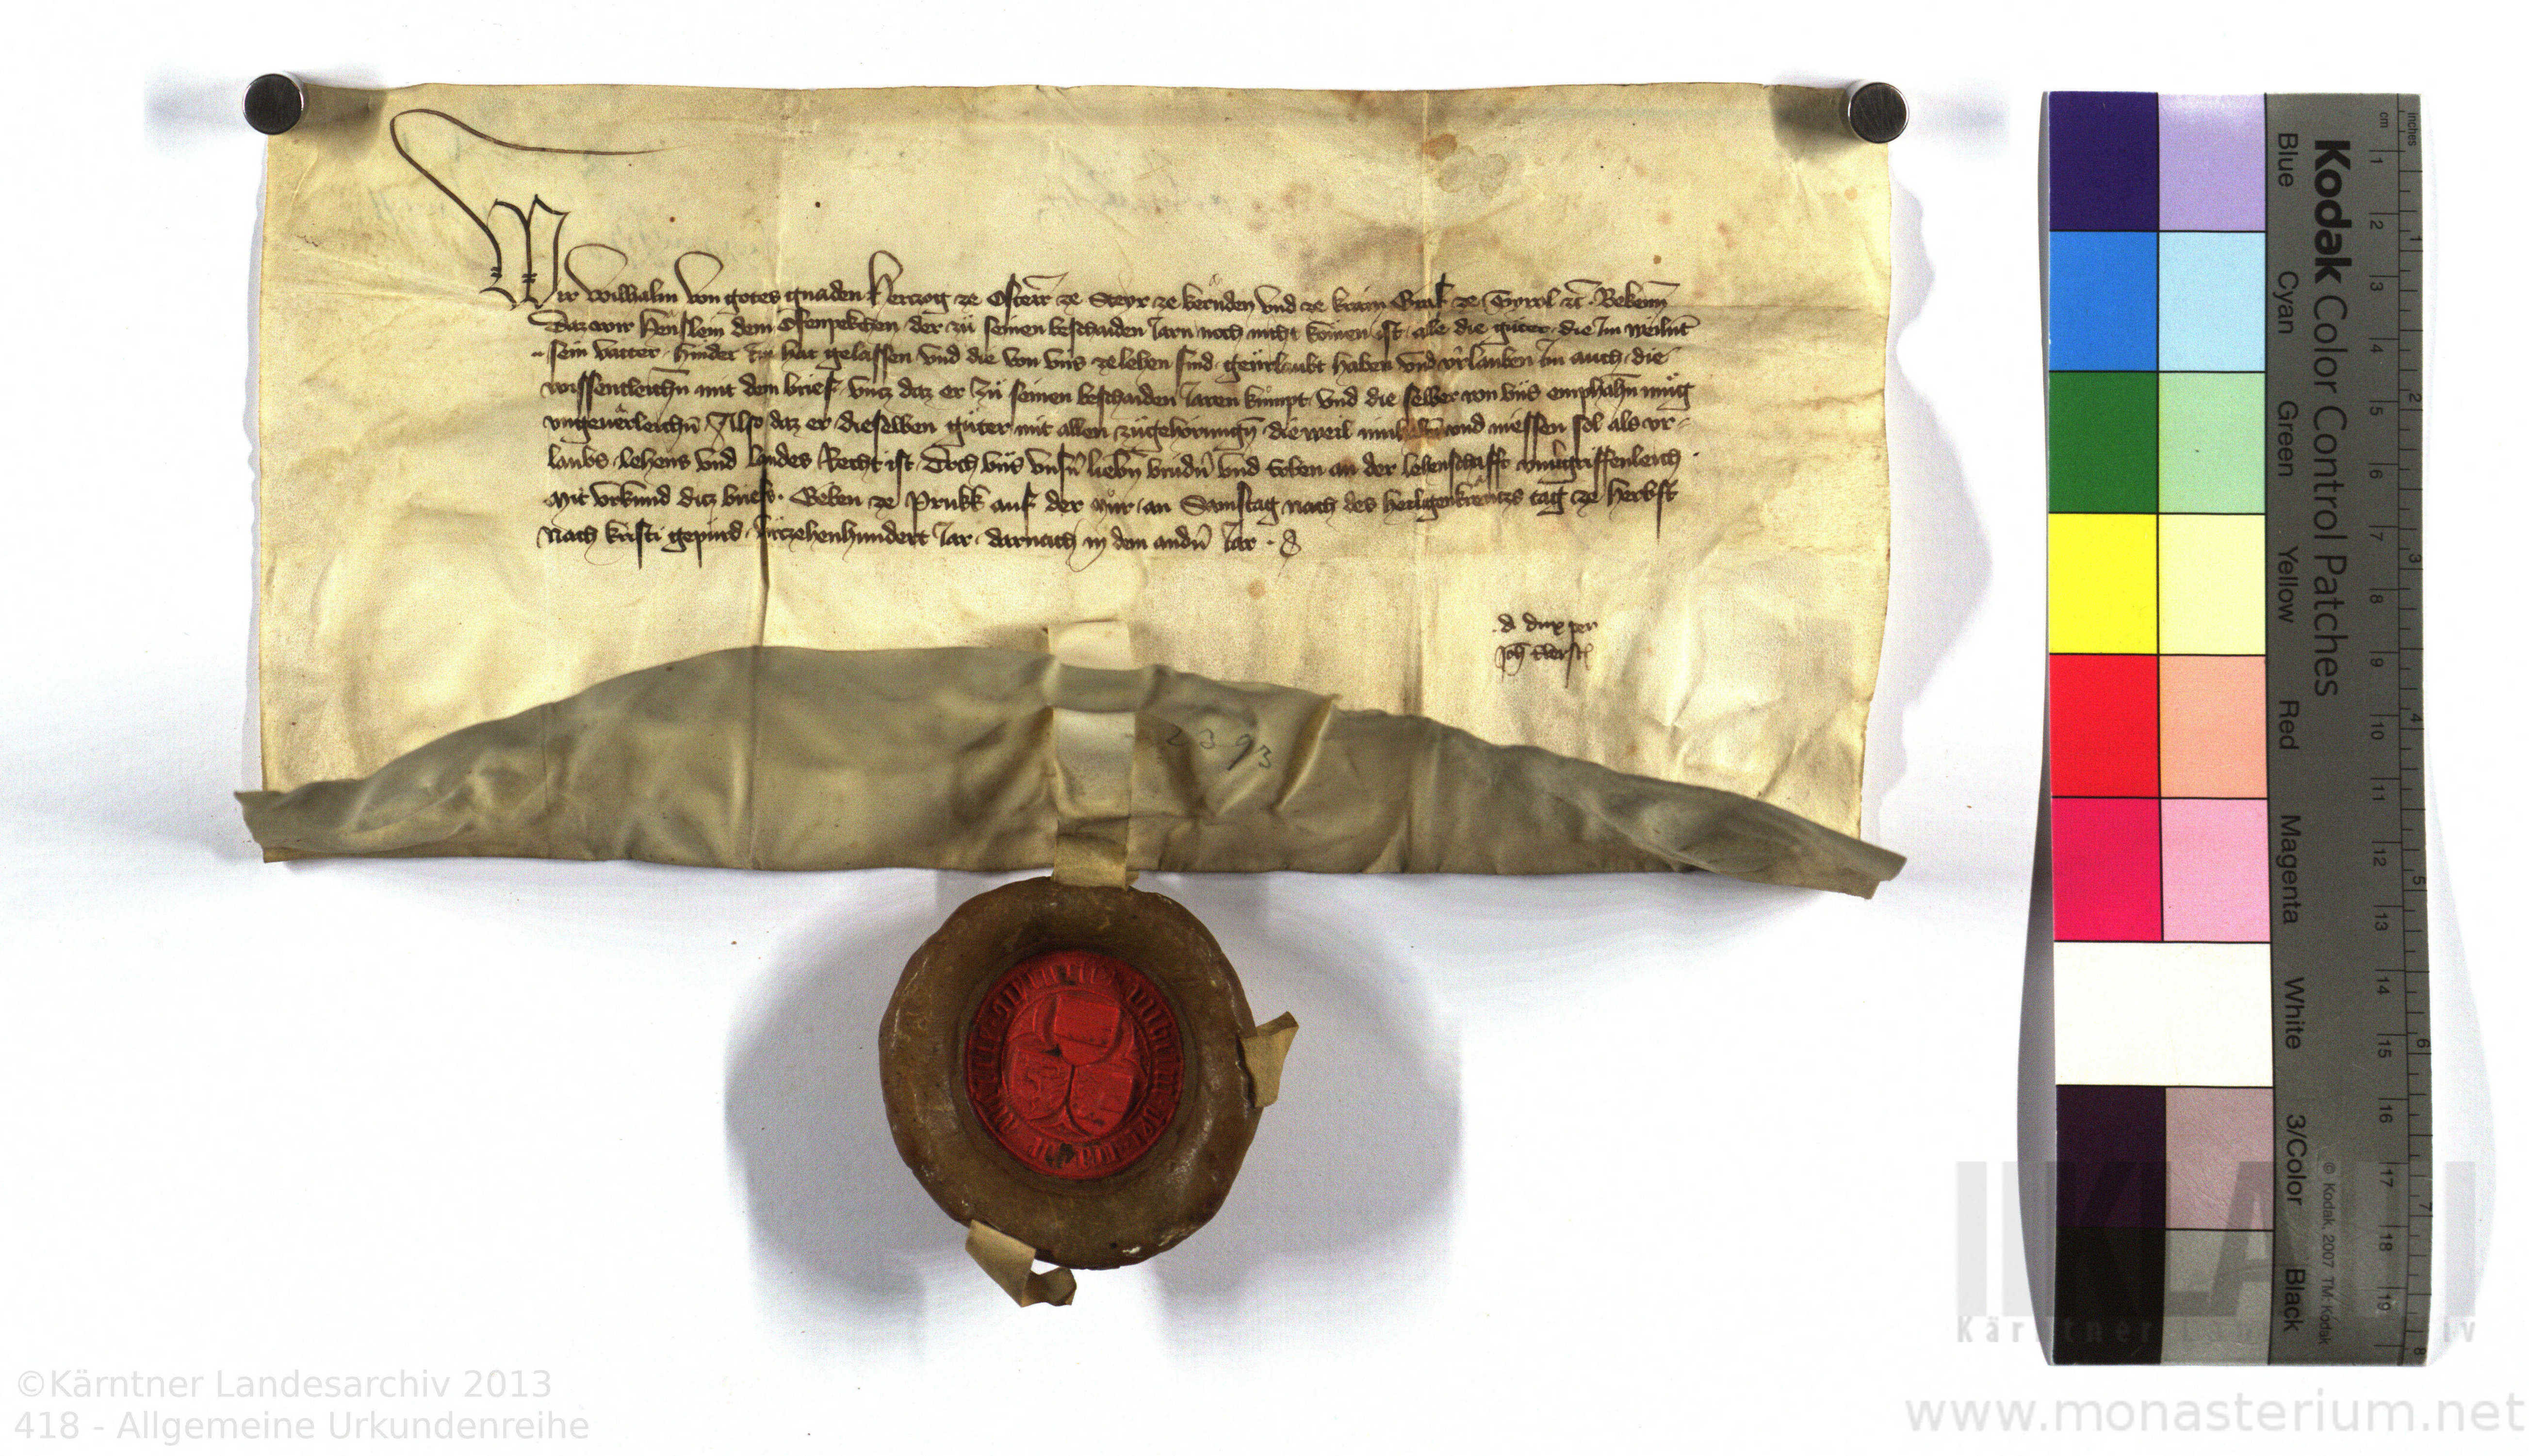 Wir Wilhalm von gotes gnaden Herczog ze Österr ze Steyr ze kernden vnd ze krain Graf ze Tyrol etc Bekenn
Daz wir Henslein dem Ofenpekchen der zu seinen beschaiden Jarn noch nicht komen ist alle die guter die Im weilnt
sein vatter hinder Im hat gelassen vnd die von vns ze lehen sind geurlaubt haben vnd vrlauben Im auch die
wissentleichn mit dem brief vncz daz er zu seinen beschaiden Jaren kumpt vnd die selber von vns emphahn mug
vngeuerleichn Also daz er dieselben guter mit allen zugehorungn die weil innhaben vnd niessen sol als vr-
laubs lehens vnd landes Recht ist Doch vns vnsn liebn brudn vnd Erben an der lehenschafft vnuergriffenleich
Mit vrkund dicz briefs. Geben ze Prukk auf der Mur an Samstag nach des heiligenkreutzs tag ze herbst
Nach kristi gepurd virczehenhundert Jar darnach in dem andn Jar
d dux per
2393
Kodak Color Control Patches
Blue Cyan Green Yellow Red Magenta White 3/Color Black
cm 1 2 3 4 5 6 7 8 9 10 11 12 13 14 15 16 17 18 19
inches 1 2 3 4 5 6 7 8
© Kodak, 2007 TM: Kodak
KLA
Kärntner Landesarchiv
©Kärntner Landesarchiv 2013
418 - Allgemeine Urkundenreihe
www.monasterium.net